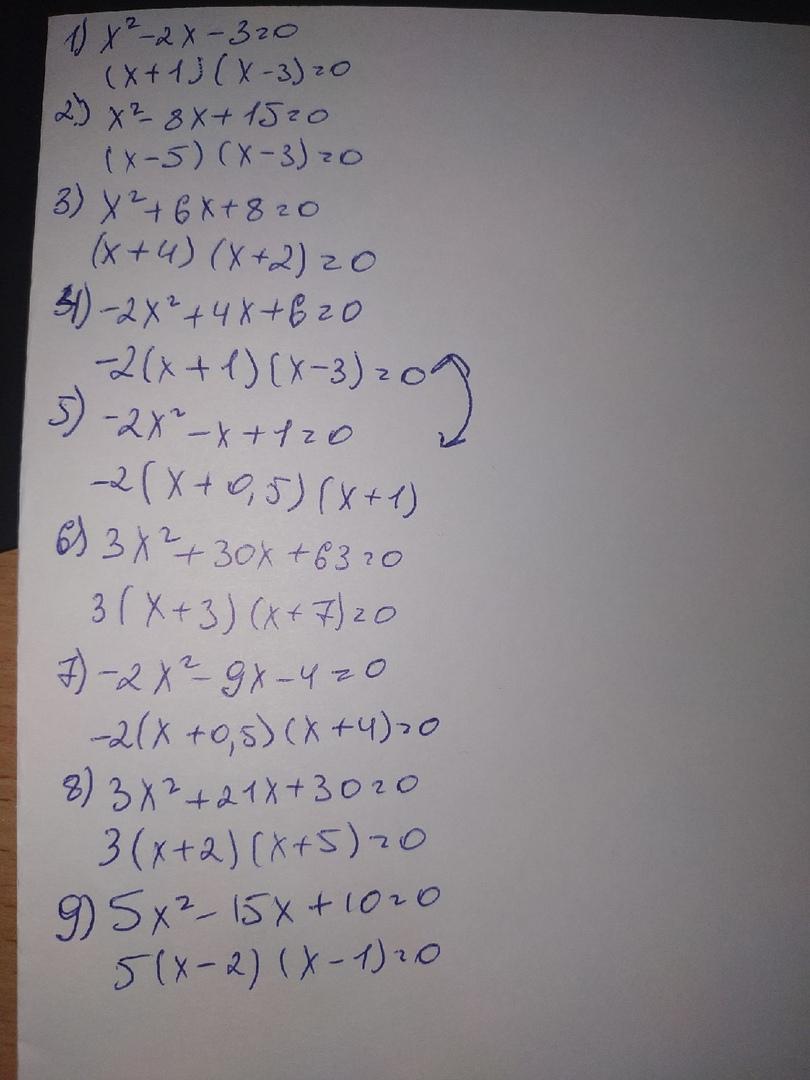 1) x²-2x-3=0
(x+1)(x-3)=0
2) x²-8x+15=0
(x-5)(x-3)=0
3) x²+6x+8=0
(x+4)(x+2)=0
4) -2x²+4x+6=0
-2(x+1)(x-3)=0
5) -2x²-x+1=0
-2(x+0,5)(x+1)
6) 3x²+30x+63=0
3(x+3)(x+7)=0
7) -2x²-9x-4=0
-2(x+0,5)(x+4)=0
8) 3x²+21x+30=0
3(x+2)(x+5)=0
9) 5x²-15x+10=0
5(x-2)(x-1)=0